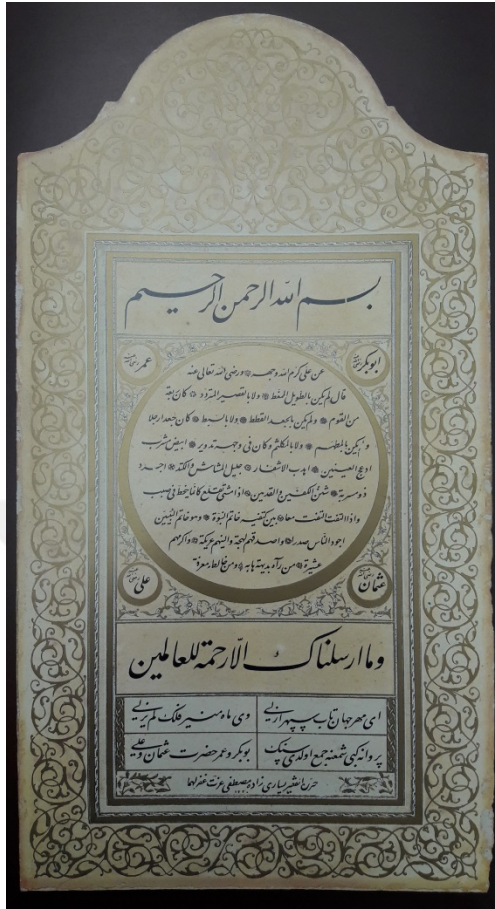 بسم الله الرحمن الرحيم
ابوبكر
عمر
عن على كرم الله وجهه ورضى الله تعالى عنه
قال لم يكن بالطويل الممغط ولا بالقصير المتردد كان ربعة
من القوم ولم يكن بالجعد القطط ولا بالسبط كان جعدا رجلا
ولم يكن بالمطهم ولا بالمكلثم وكان فى وجهه تدوير ابيض مشرب
ادعج العينين اهدب الاشفار جليل المشاش والكتد اجرد
ذو مسربة شثن الكفين والقدمين اذا مشى تقلع كانما ينحط فى صبب
واذا التفت التفت معا بين كتفيه خاتم النبوة وهو خاتم النبيين
اجود الناس صدرا واصدقهم لهجة والينهم عريكة واكرمهم
عشيرة من رآه بديهة هابه ومن خالطه معرفة
عثمان
على
وما ارسلناك الا رحمة للعالمين
اى مهر جهان تاب سپهر ازلى وى ماه منير فلك لم يزلى
پروانه كبى جمع اولدى بوبكر و عمر حضرت عثمان و على
حرره الفقير يسارى زاده مصطفى عزت غفر لهما